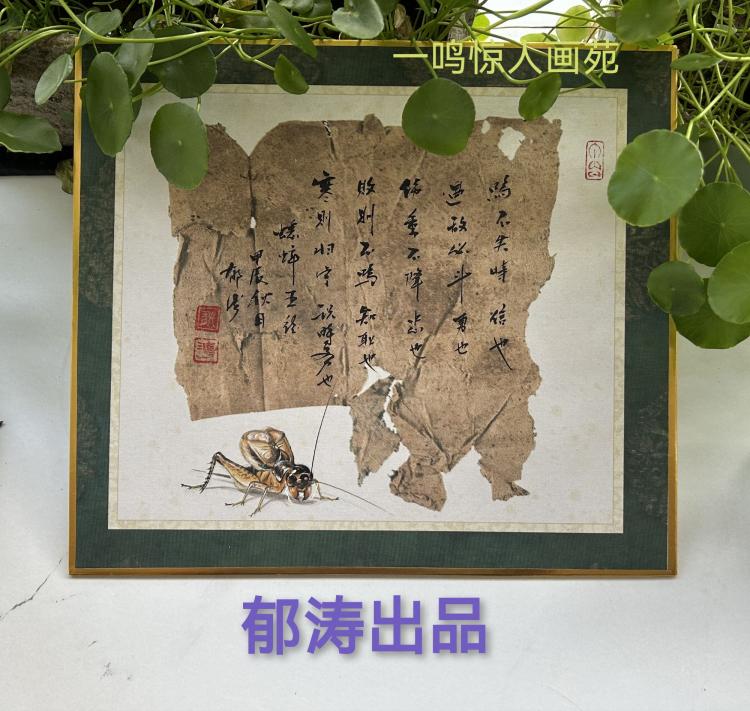 一鸣惊人画苑
鳴不失時 信也
遇敌必斗 勇也
伤重不降 忠也
敗則不鳴 知耻也
寒則归宁 识時务也
蟋蟀五德
甲辰秋月
郁涛
郁涛出品